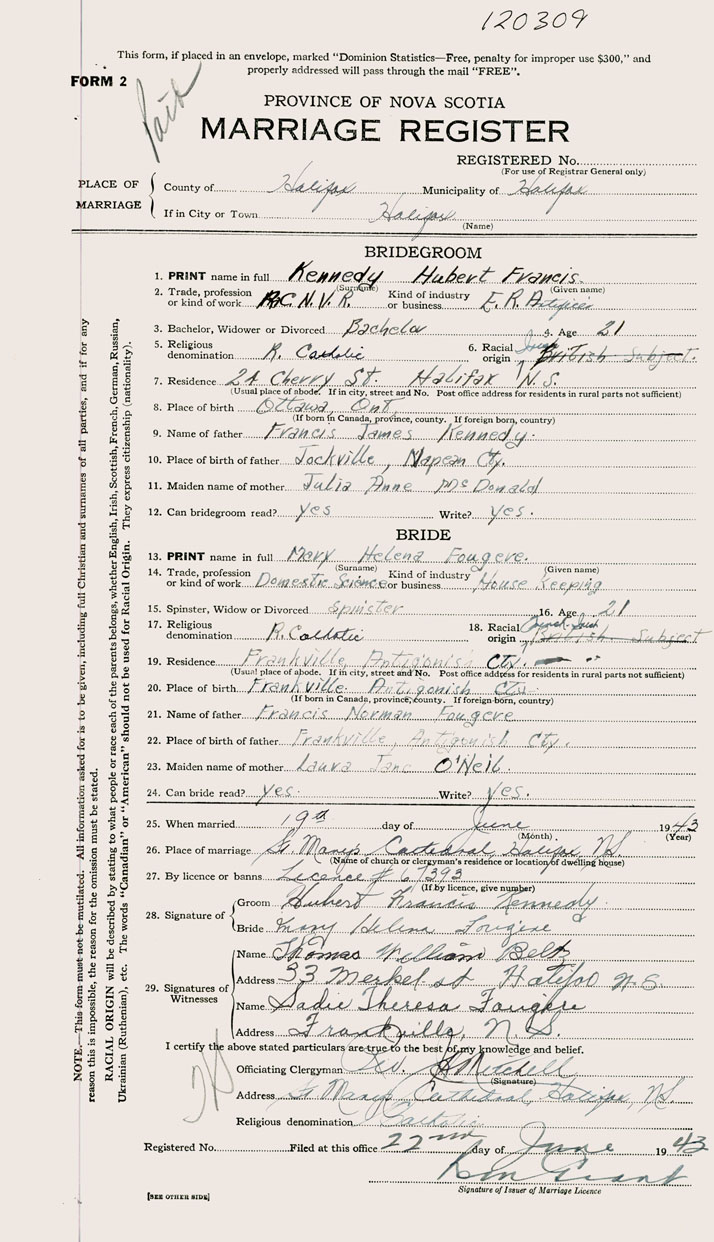 120309
This form, if placed in an envelope, marked "Dominion Statistics—Free, penalty for improper use $300," and
properly addressed will pass through the mail "FREE".
FORM 2
PROVINCE OF NOVA SCOTIA
MARRIAGE REGISTER
REGISTERED No.
(For use of Registrar General only)
PLACE OF MARRIAGE
County of Halifax Municipality of Halifax
If in City or Town Halifax
(Name)
BRIDEGROOM
1. PRINT name in full Kennedy Hubert Francis.
(Surname) (Given name)
2. Trade, profession or kind of work R.C.N.V.R. Kind of industry or business E.R. Artificer
3. Bachelor, Widower or Divorced Bachelor 4. Age 21
5. Religious denomination R. Catholic 6. Racial origin Irish British Subject.
7. Residence 24 Cherry St. Halifax N.S.
(Usual place of abode. If in city, street and No. Post office address for residents in rural parts not sufficient)
8. Place of birth Ottawa, Ont.
(If born in Canada, province, county. If foreign born, country)
9. Name of father Francis James Kennedy.
10. Place of birth of father Jockville, Napean Cty.
11. Maiden name of mother Julia Anne McDonald
12. Can bridegroom read? yes Write? yes.
BRIDE
13. PRINT name in full Mary Helena Fougere.
(Surname) (Given name)
14. Trade, profession or kind of work Domestic Science Kind of industry or business House Keeping
15. Spinster, Widow or Divorced Spinster 16. Age 21
17. Religious denomination R. Catholic 18. Racial origin French-Irish British Subject
19. Residence Frankville, Antigonish Cty.
(Usual place of abode. If in city, street and No. Post office address for residents in rural parts not sufficient)
20. Place of birth Frankville Antigonish Cty.
(If born in Canada, province, county. If foreign born, country)
21. Name of father Francis Norman Fougere
22. Place of birth of father Frankville, Antigonish Cty.
23. Maiden name of mother Laura Jane O'Neil.
24. Can bride read? yes. Write? yes.
25. When married 19th day of June 1943
(Month) (Year)
26. Place of marriage St. Marys Cathedral Halifax, N.S.
(Name of church or clergyman's residence or location of dwelling house)
27. By licence or banns Licence # 67393
(If by licence, give number)
28. Signature of
Groom Hubert Francis Kennedy
Bride Mary Helena Fougere
29. Signatures of Witnesses
Name Thomas William Beltz
Address 33 Merkel st Halifax N.S.
Name Sadie Theresa Fougere
Address Frankville, N.S.
I certify the above stated particulars are true to the best of my knowledge and belief.
Officiating Clergyman Mitchell
(Signature)
Address St Marys Cathedral, Halifax, N.S.
Religious denomination Catholic
Registered No. Filed at this office 22nd day of June 1943
Grant
Signature of Issuer of Marriage Licence
[SEE OTHER SIDE]
NOTE.—This form must not be mutilated. All information asked for is to be given, including full Christian and surnames of all parties, and if for any
reason this is impossible, the reason for the omission must be stated.
RACIAL ORIGIN will be described by stating to what people or race each of the parents belongs, whether English, Irish, Scottish, French, German, Russian,
Ukrainian (Ruthenian), etc. The words "Canadian" or "American" should not be used for Racial Origin. They express citizenship (nationality).